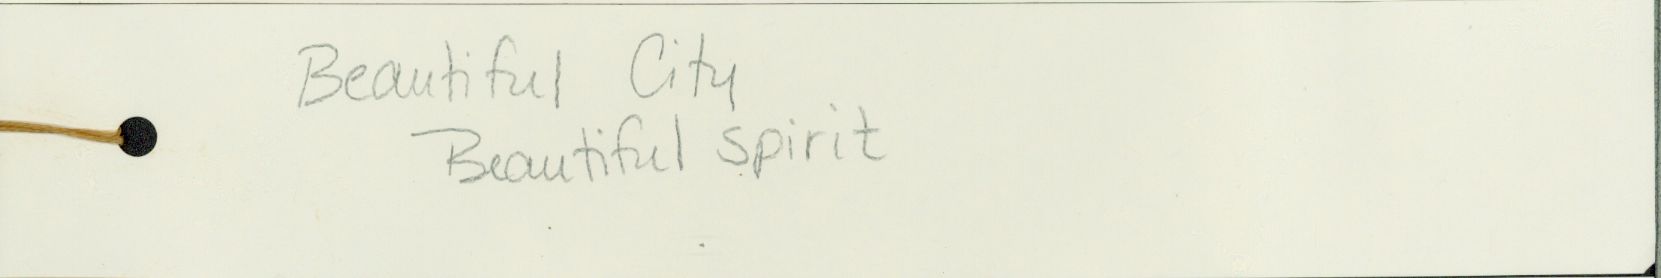 Beautiful City
Beautiful spirit